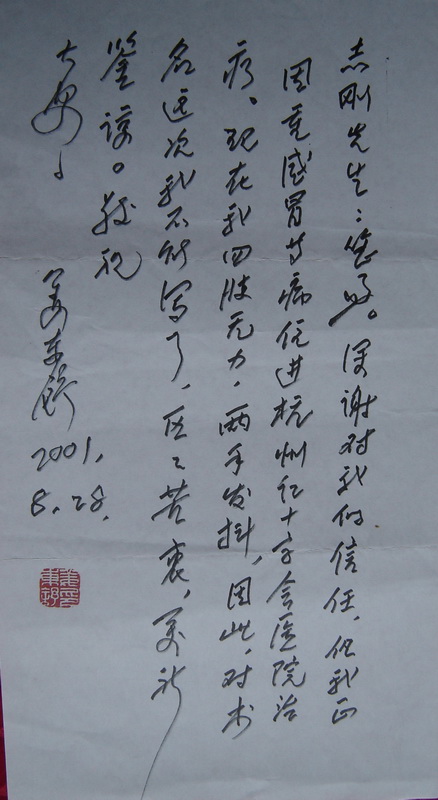 志刚先生：您好。深谢对我的信任，但我正
因重感冒等病住进杭州红十字会医院治
疗、现在我四肢无力，两手发抖，因此，对
名这次我不能写了，区区苦衷，万祈
鉴谅。敬祝
大安！
姜东舒
2001.
8.28.
姜东舒